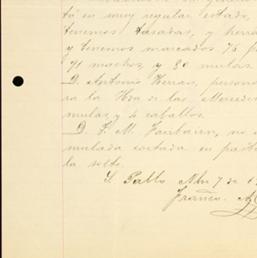 tá en muy regular estado,
tenemos tasadas, y herra
y tenemos marcados 75 p
71 machos, y 80 mulas
D. Antonio Herran, person
ra la Hda de las Mercedes
mulas y 4 caballos.
D. F. M. Fairbairn, no
mulada cortada en past
la solte.
S. Pablo Nbre 7 de 1
Franco. A